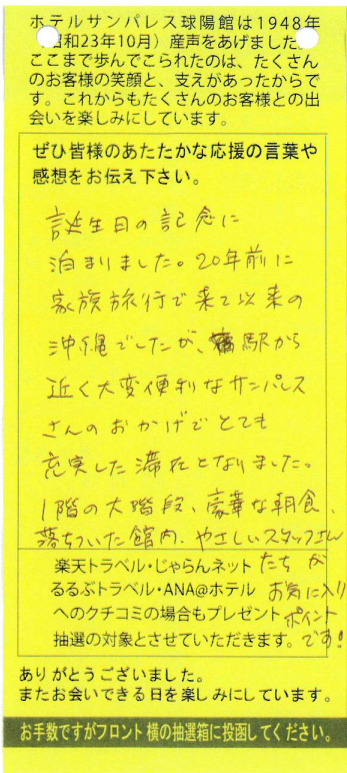 ホテルサンパレス球陽館は1948年
昭和23年10月）産声をあげました。
ここまで歩んでこられたのは、たくさん
のお客様の笑顔と、支えがあったからで
す。これからもたくさんのお客様との出
会いを楽しみにしています。
ぜひ皆様のあたたかな応援の言葉や
感想をお伝え下さい。
誕生日の記念に
泊まりました。20年前に
家族旅行で来て以来の
沖縄でしたが、駅から
近く大変便利なサンパレス
さんのおかげでとても
充実した滞在となりました。
1階の大階段、豪華な朝食、
落ちついた館内、やさしいスタッフさん
たちが
お気に入り
ポイント
です!
楽天トラベル・じゃらんネット
るるぶトラベル・ANA@ホテル
へのクチコミの場合もプレゼント
抽選の対象とさせていただきます。
ありがとうございました。
またお会いできる日を楽しみにしています。
お手数ですがフロント横の抽選箱に投函してください。